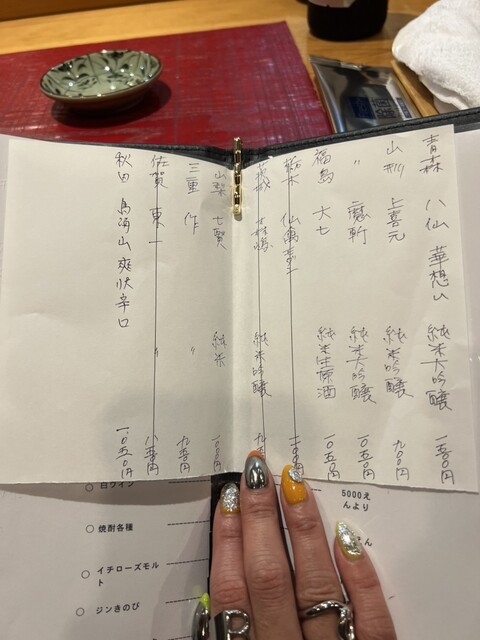 青森 八仙 華想い 純米大吟醸 一五〇〇円
山形 上喜元 純米吟醸 九〇〇円
〃 魔斬 純米大吟醸 一〇五〇円
福島 大七 純米生原酒 一〇五〇円
栃木 仙禽
茨城 森嶋 純米吟醸
山梨 七賢 純米
三重 作 〃 九五〇円
佐賀 東一 〃 八五〇円
秋田 鳥海山 爽快辛口 一〇五〇円
5000え
んより
白ワイン
○ 焼酎各種
○ イチローズモル
ト
○ ジンきのび